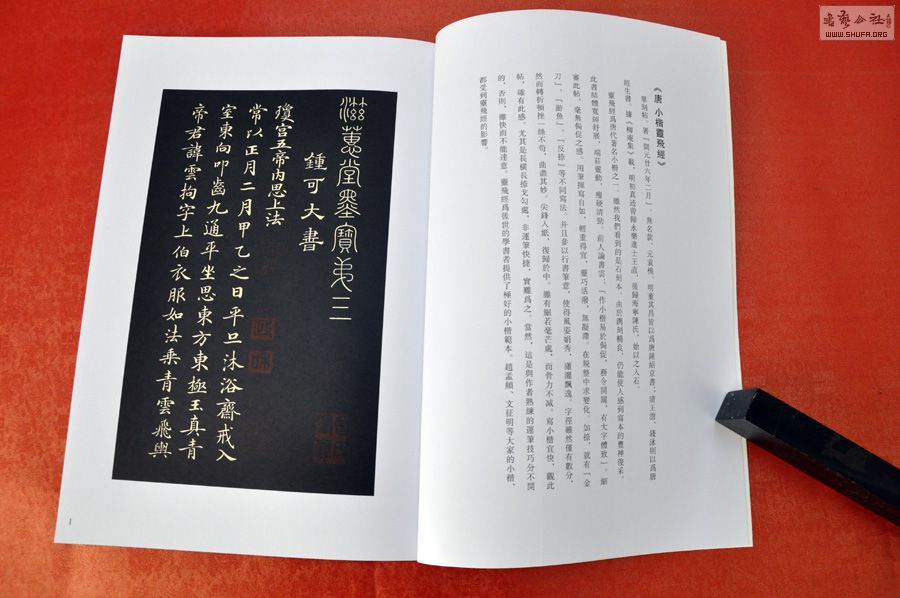 《唐 小楷靈飛經》
單刻帖。署「開元廿六年二月」，無名款，元袁桷、明董其昌皆以爲唐鍾紹京書；清王澍、錢泳則以爲唐
經生書。據《柳庵集》載，明初真迹曾歸永樂進士王直，後歸海寧陳氏，始以之入石。
靈飛經爲唐代著名小楷之一。雖然我們看到的是石刻本，由於鐫刻精良，仍能使人感到寫本的豐神俊采。
此書結體寬綽舒展，端莊靈動，瘦硬清勁。前人論書雲：「作小楷易於侷促，務令開闊，有大字體致」。細
審此帖，毫無侷促之感。用筆揮寫自如，輕重得宜，靈巧活潑，無凝滯。在規整中求變化。如捺，就有「金
刀」、「游魚」、「反捺」等不同寫法。并且參以行書筆意，使得風姿娟秀，瀟灑飄逸。字徑雖然僅有數分，
然而轉折頓挫一絲不苟，曲盡其妙。尖鋒入紙，復歸於中。雖有細若毫芒處，而骨力不减。寫小楷宜快，觀此
帖，確有此感。尤其是長橫長捺戈勾處，非運筆快捷，實難爲之。當然，這是與作者熟練的運筆技巧分不開
的，否則，雖快而不能達意。靈飛經爲後世的學書者提供了極好的小楷範本。趙孟頫、文征明等大家的小楷，
都受到靈飛經的影響。
滋蕙堂墨寶弟三
鍾可大書
瓊宮五帝內思上法
常以正月二月甲乙之日平旦沐浴齋戒入
室東向叩齒九通平坐思東方東極玉真青
帝君諱雲拘字上伯衣服如法乘青雲飛輿
1
WWW.SHUFA.ORG